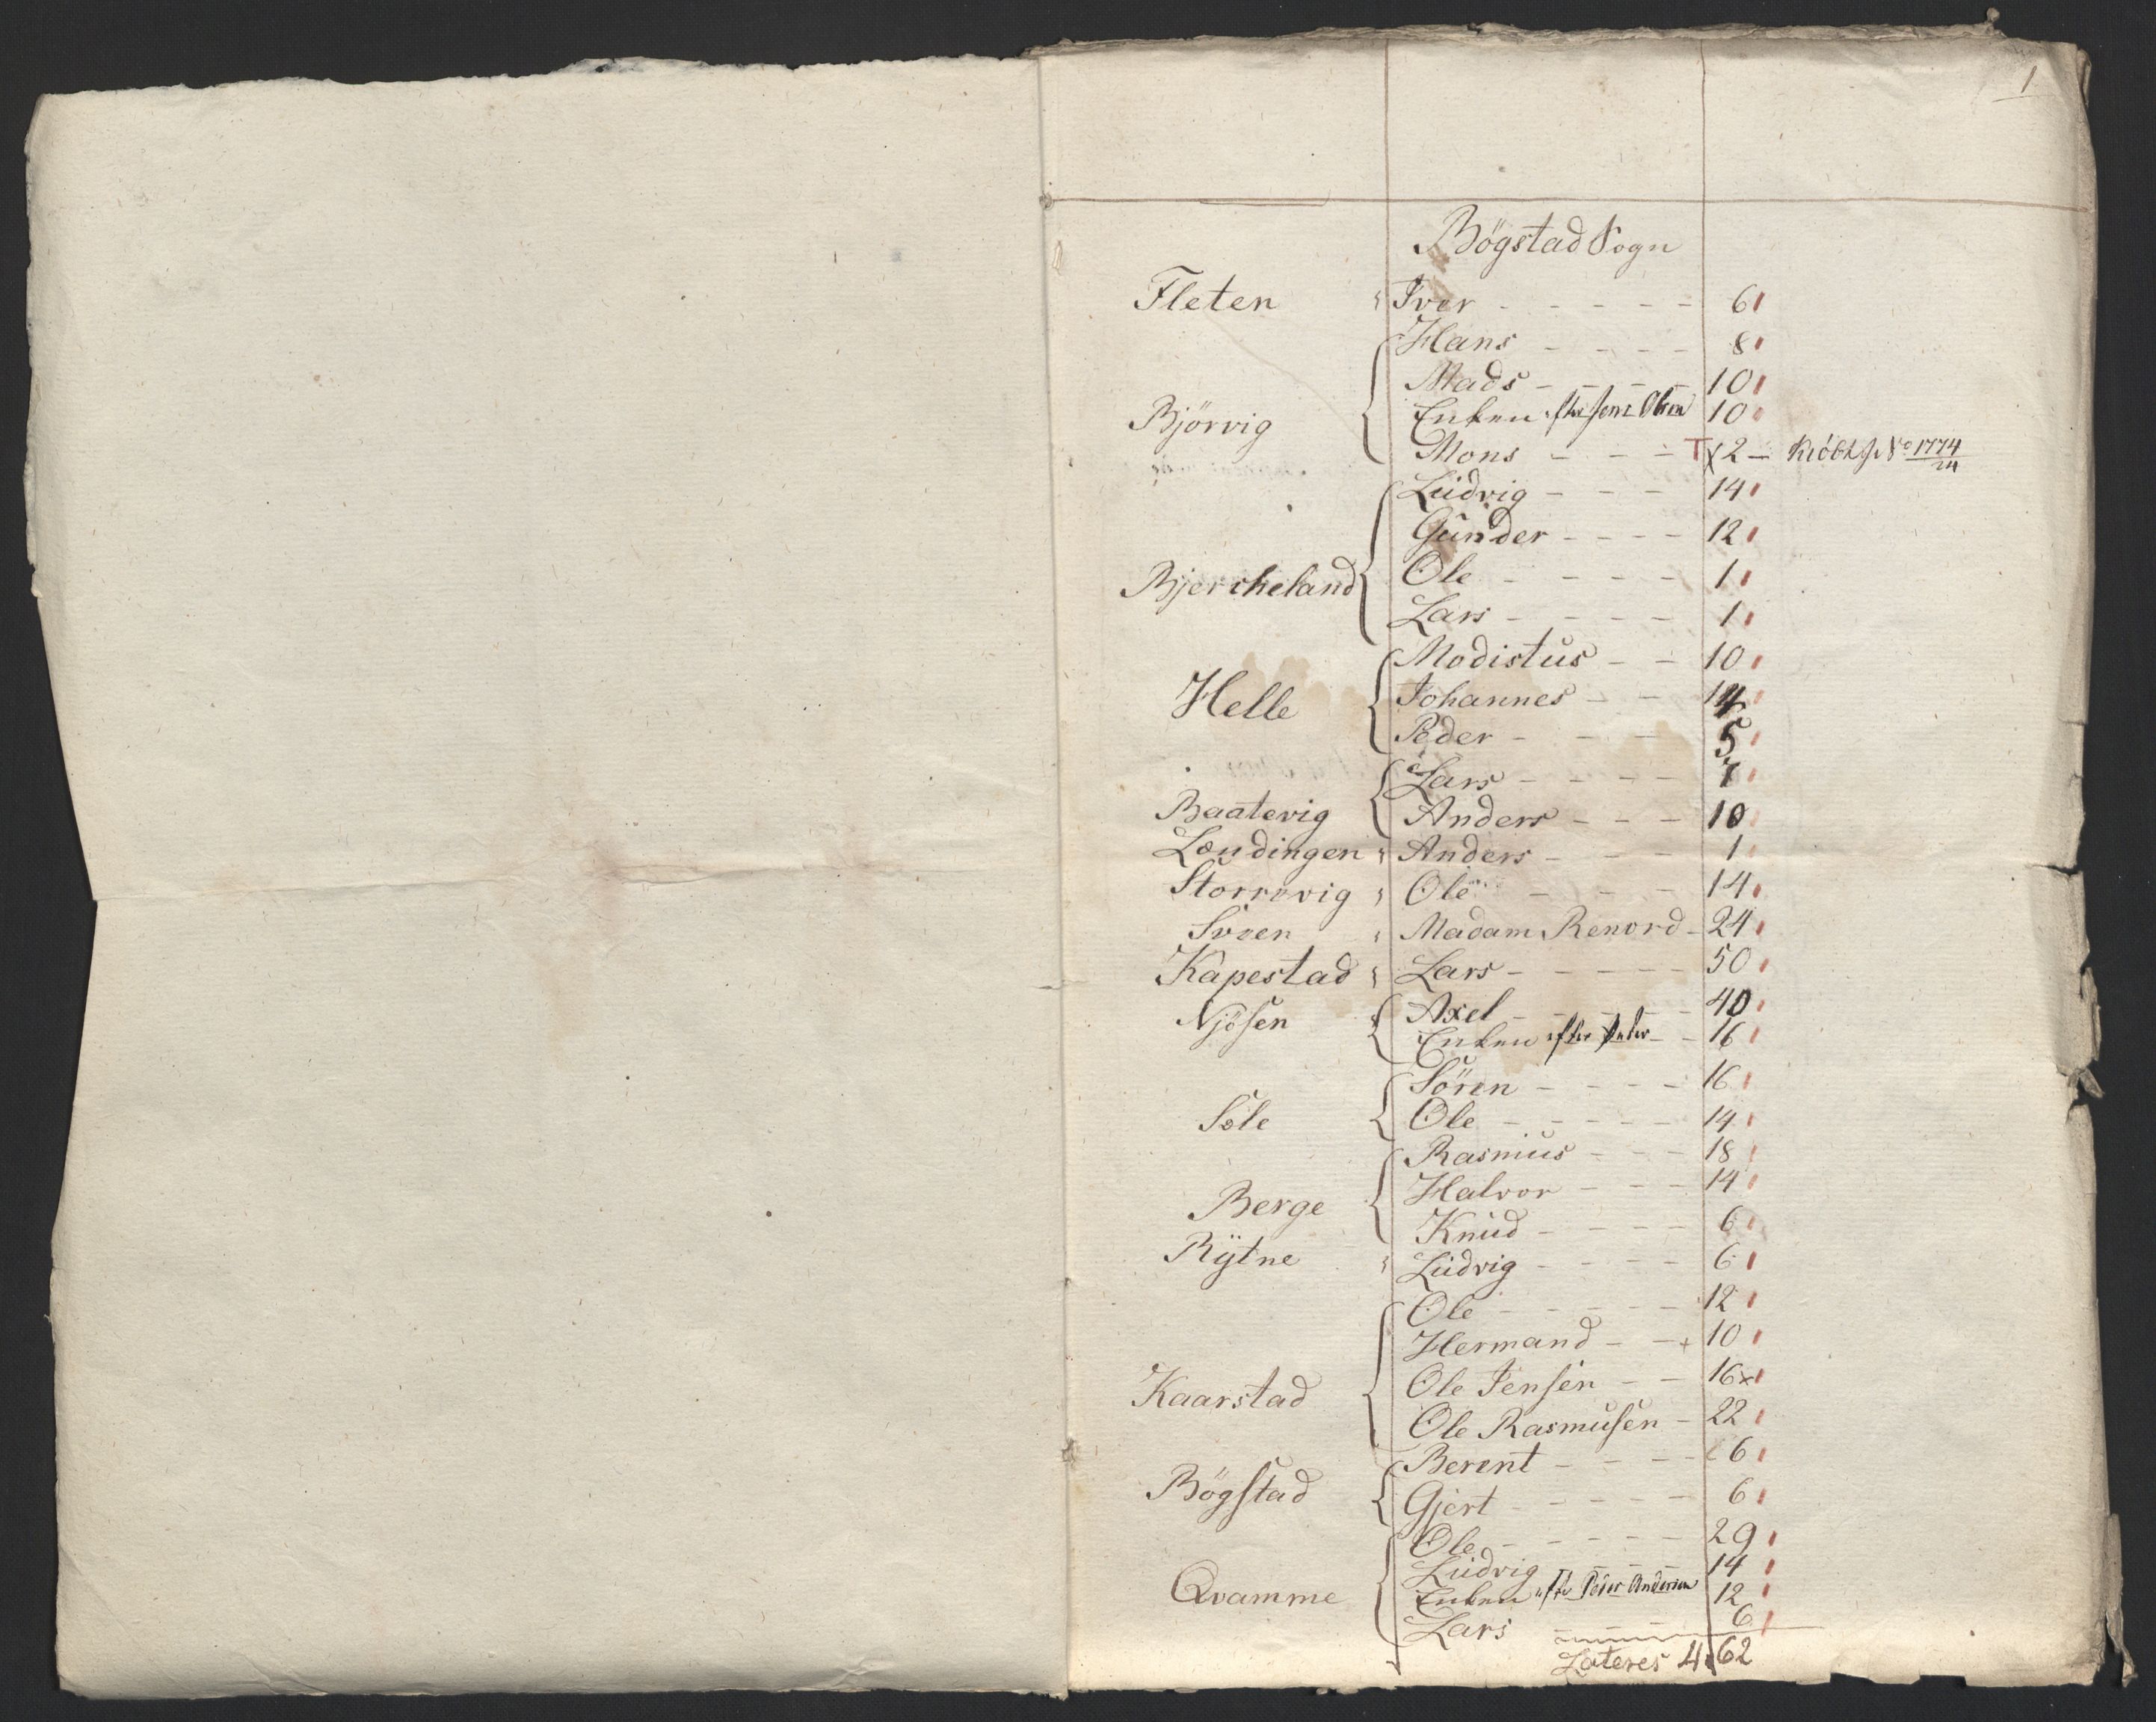 1
Bögstad Sogn
Fleten Iver - - - - - 6
Hans - - - - 8
Mads - - - - 10
Björvig Enken efter Jens Olsen 10
Mons - - - T 12 - No 1774/24
Ludvig - - - 14
Gunder - - - - 12
Bjercheland Ole - - - - 1
Lars - - - - 1
Modistus - - 10
Helle Johannes - - 14
Peder - - - 5
Lars - - - - 7
Baatevig Anders - - - 10
Løndingen Anders - - - 1
Storrevig Ole - - - 14
Svoen Madam Renord - 24
Kapestad Lars - - - - - 50
Njösen Axel - - - - - 40
Enken efter Peder - - 16
Sören - - - - 16
Søle Ole - - - - - 14
Rasmus - - - 18
Berge Halvor - - - 14
Knud - - - - 6
Rÿtne Ludvig - - - - 6
Ole - - - - - 12
Hermand - - + 10
Kaarstad Ole Jensen - - 16x
Ole Rasmusen - 22
Berent - - - - 6
Bögstad Gjert - - - - - 6
Ole - - - - - 29
Ludvig - - - - 14
Qvamme Enken efter Peder Andersen 12
Lars 6
Lateres 462